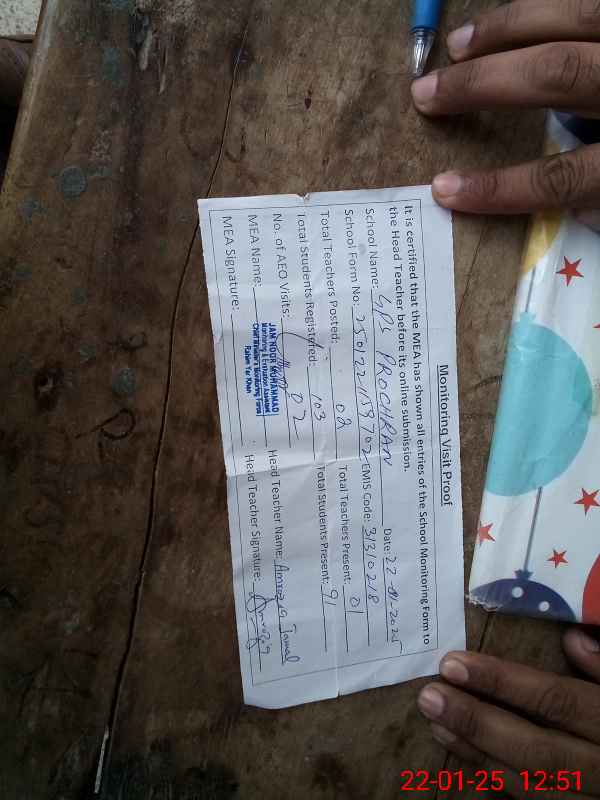 Monitoring Visit Proof
It is certified that the MEA has shown all entries of the School Monitoring Form to
the Head Teacher before its online submission.
School Name: GPS PROCHRAN Date: 22-01-2025
School Form No: EMIS Code: 31310218
Total Teachers Posted: 02 Total Teachers Present: 01
Total Students Registered: 103 Total Students Present: 91
No. of AEO Visits: 02
MEA Name: JAM NOOR MUHAMMAD Head Teacher Name: Jamal
Monitoring & Evaluation Assistant
Chief Minister's Monitoring Force
Rahim Yar Khan
MEA Signature: Head Teacher Signature:
22-01-25 12:51